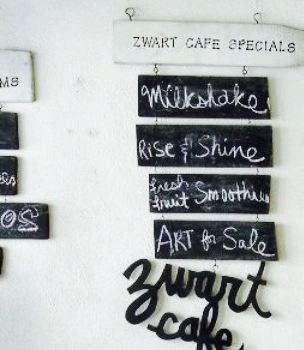 ZWART CAFE SPECIALS
Milkshake
Rise & Shine
fresh
fruit Smoothies
ART for Sale
zwart
cafe
MS
OS